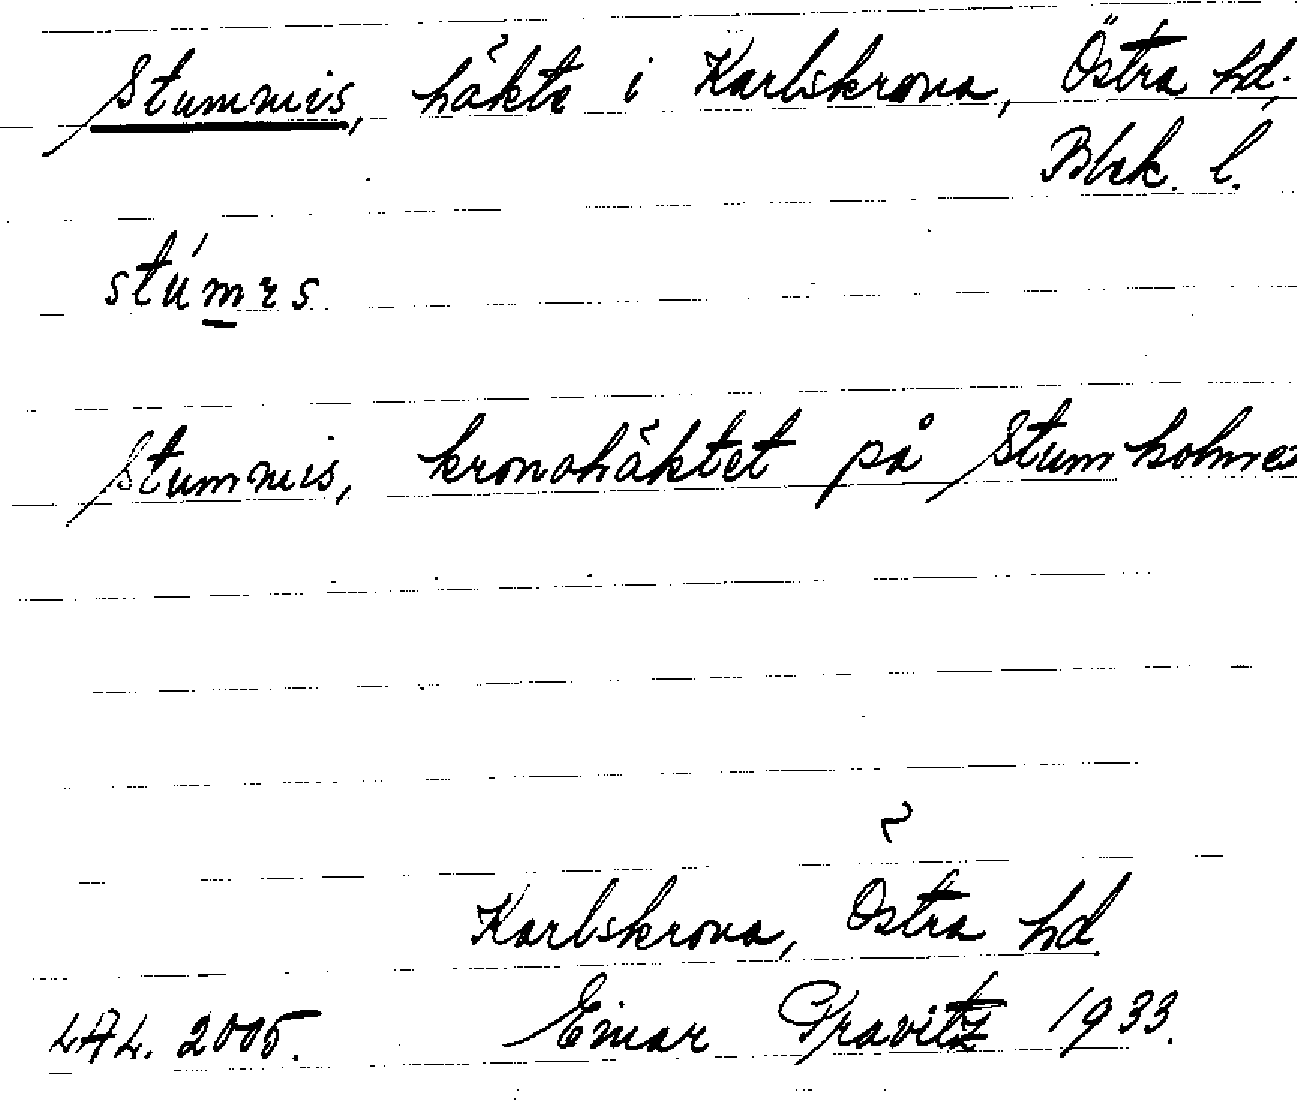 Stummis, häkte i Karlskrona, Östra hd.
Blek. l.
stúmɪs
Stummis, kronohäktet på Stumholmen
Karlskrona, Östra hd.
LAL. 2005. Einar Kravitz 1933.